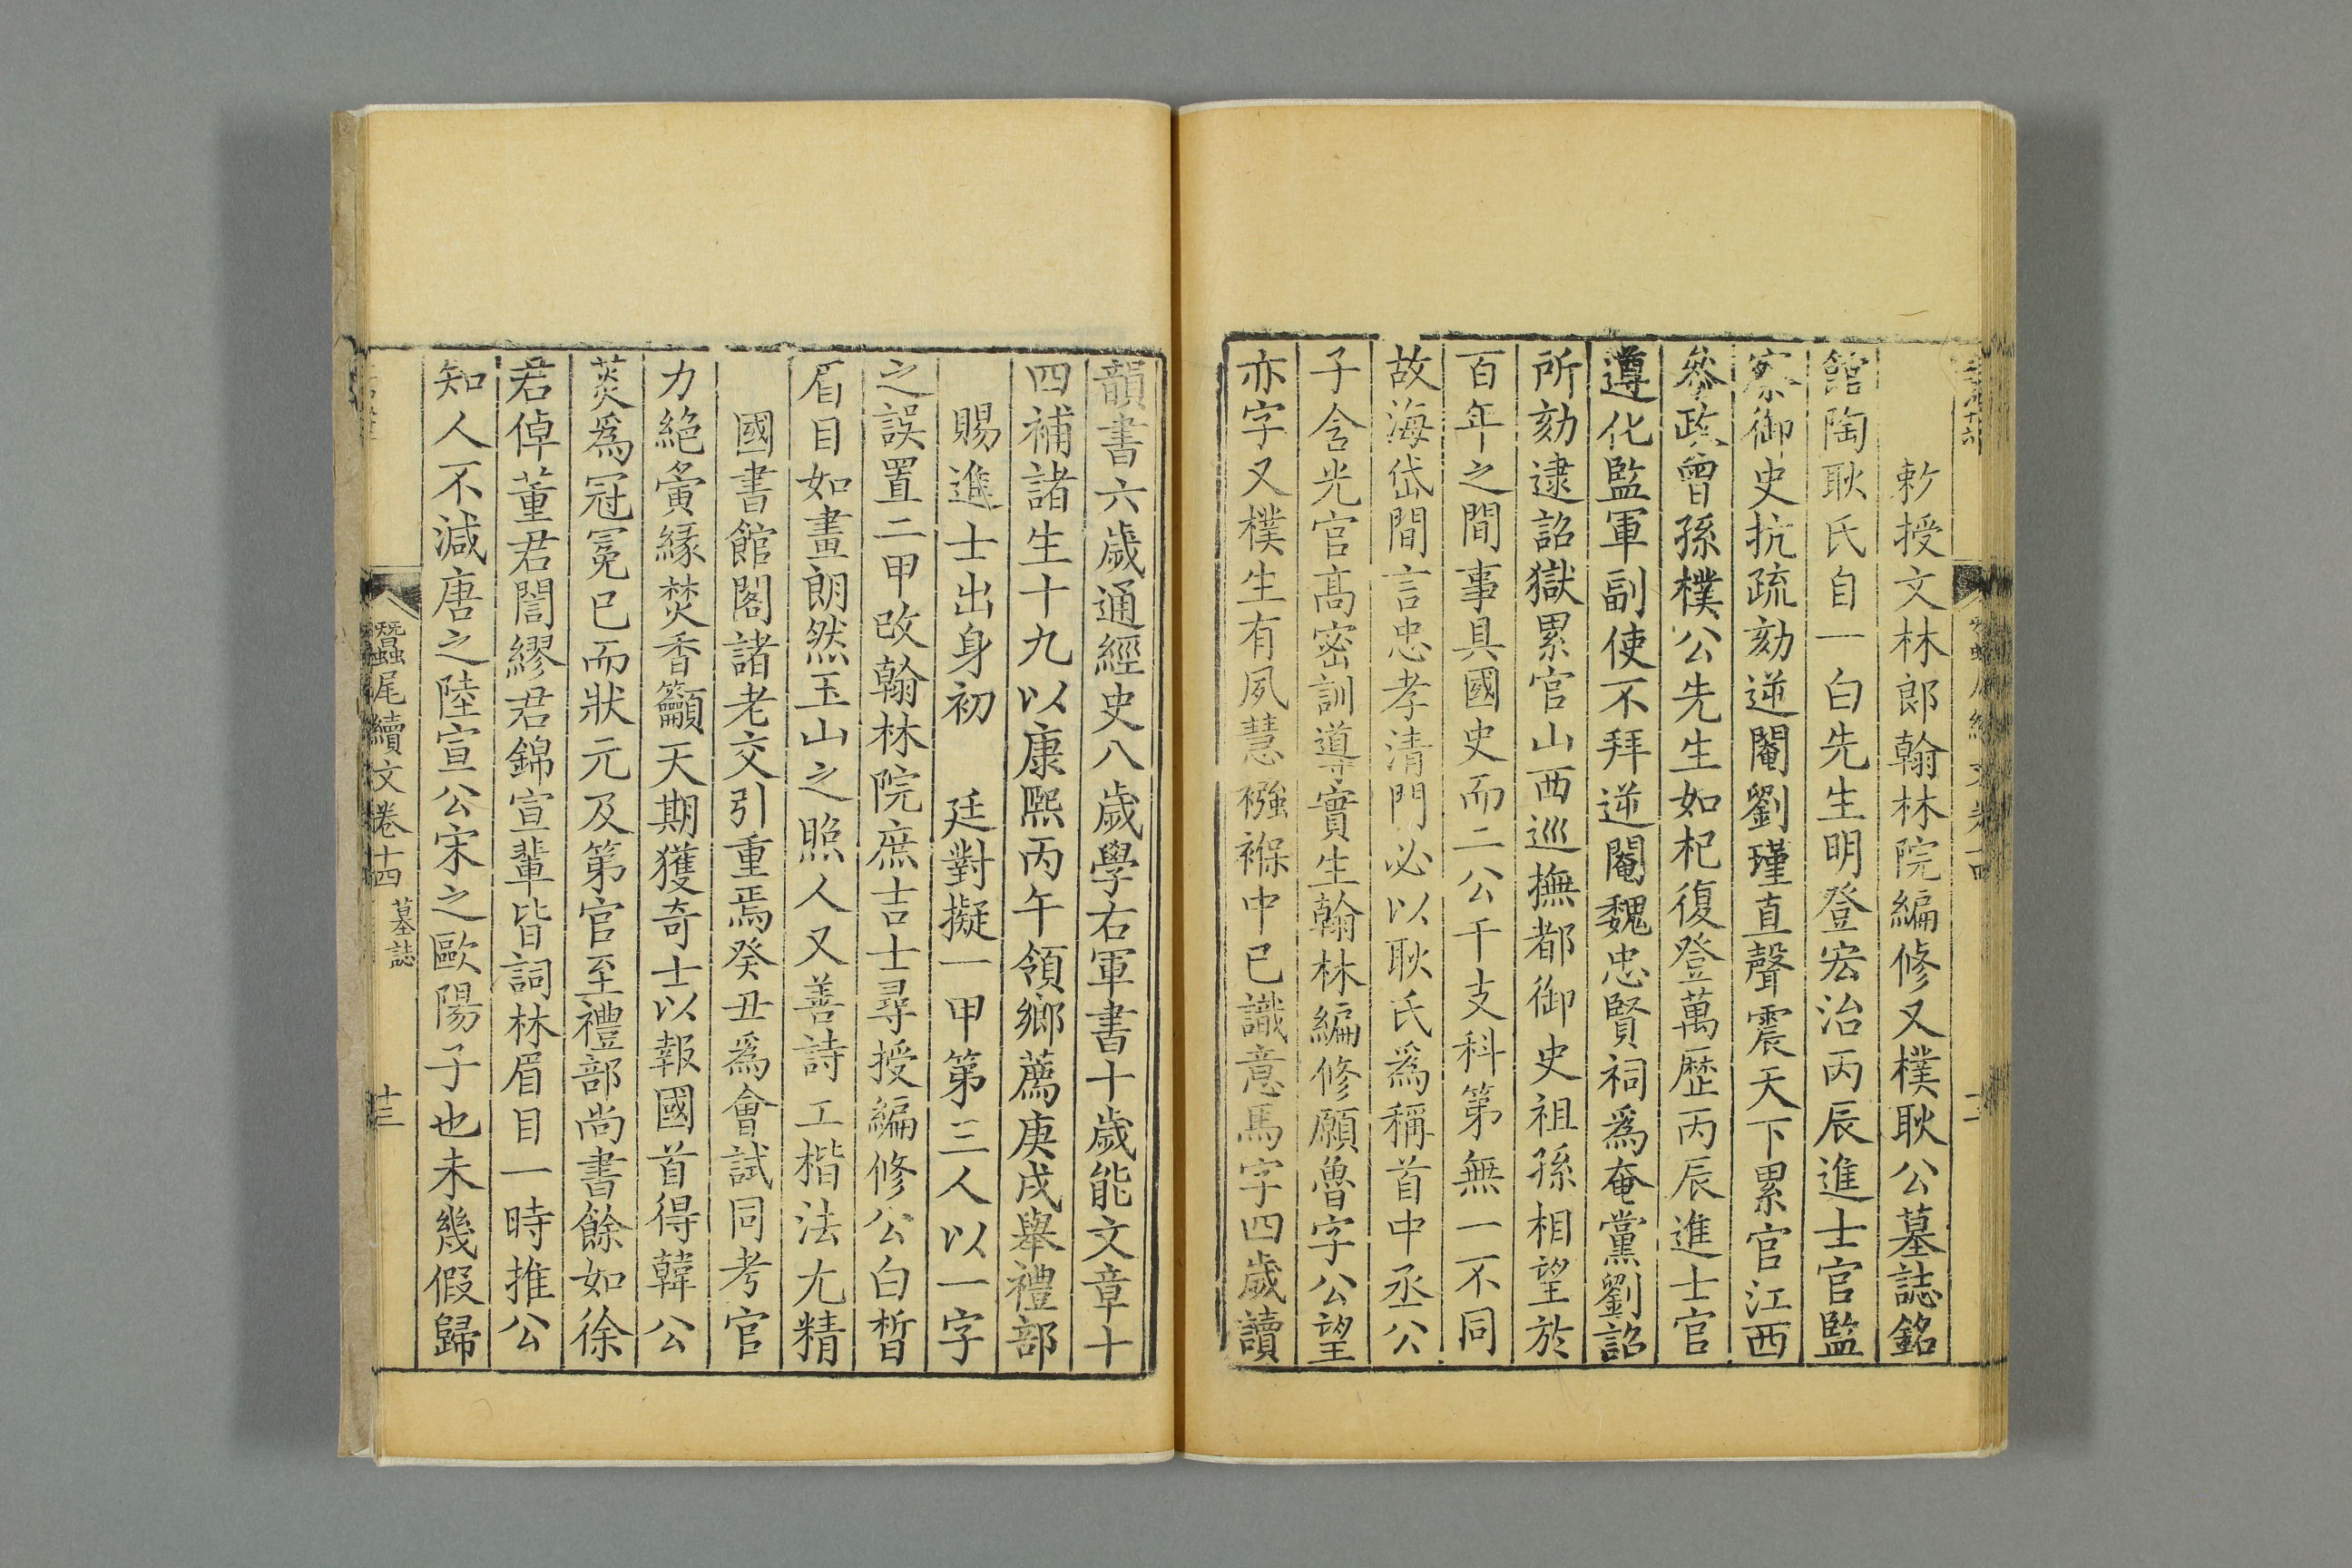 敕授文林郎翰林院編修又樸耿公墓誌銘
館陶耿氏自一白先生明登宏治丙辰進士官監
察御史抗疏劾逆閹劉瑾直聲震天下累官江西
叅政曾孫樸公先生如杞復登萬歷丙辰進士官
遵化監軍副使不拜逆閹魏忠賢祠爲奄黨劉詔
所劾逮詔獄累官山西巡撫都御史祖孫相望於
百年之間事具國史而二公干支科第無一不同
故海岱間言忠孝清門必以耿氏爲稱首中丞公
子含光官高密訓導實生翰林編修願魯字公望
亦字又樸生有夙慧襁褓中已識意馬字四歲讀
韻書六歲通經史八歲學右軍書十歲能文章十
四補諸生十九以康熙丙午領鄉薦庚戌舉禮部
賜進士出身初　廷對擬一甲第三人以一字
之誤置二甲改翰林院庶吉士尋授編修公白晳
眉目如畫朗然玉山之照人又善詩工楷法尤精
國書館閣諸老交引重焉癸丑爲會試同考官
力絕夤緣焚香籲天期獲奇士以報國首得韓公
菼爲冠冕已而狀元及第官至禮部尚書餘如徐
君倬董君誾繆君錦宣輩皆詞林眉目一時推公
知人不減唐之陸宣公宋之歐陽子也未幾假歸
蠶尾續文卷十四　墓誌　十三